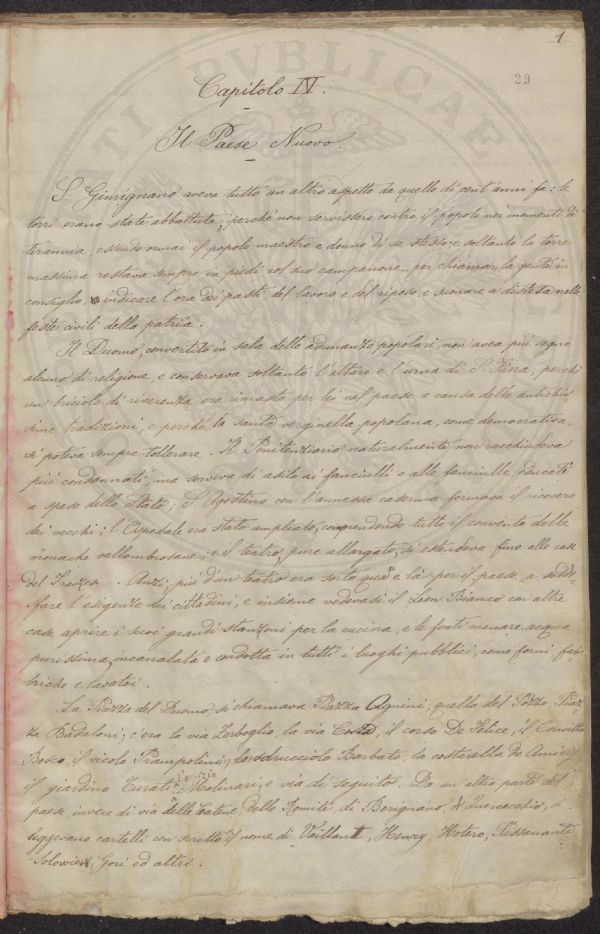 1
29
Capitolo IV.
Il Paese Nuovo.
S. Gimignano aveva tutto un altro aspetto da quello di cent'anni fa: le
torri erano state abbattute, perché non servissero contro il popolo nei momenti di
tirannia, essendo ormai il popolo maestro e donno di se stesso; e soltanto la torre
massima restava sempre in piedi col suo campanone per chiamar la gente in
consiglio, indicare l'ora dei pasti del lavoro e del riposo, e suonare a distesa nelle
feste civili della patria.
Il Duomo, convertito in sala delle adunanze popolari, non avea più segno
alcuno di religione e conservava soltanto l'altare e l'urna di S. Fina, perché
un briciolo di riverenza era rimasto per lei nel paese a causa delle antichis
sime tradizioni, e perché la santa verginella popolana, come democratica,
si poteva sempre tollerare. Il Penitenziario naturalmente non racchiudeva
più condannati, ma serviva di asilo ai fanciulli e alle fanciulle educati
a spese dello Stato; S. Agostino con l'annessa caserma formava il ricovero
dei vecchi; l'Ospedale era stato ampliato, comprendendo tutto il convento delle
monache vallombrosane; e il teatro, pure allargato, si estendeva fino alle case
del . Anzi, più d'un teatro era sorto qua e là per il paese a soddi
sfare l'esigenze dei cittadini, e insieme vedevasi il Leon Bianco con altre
case aprire i suoi grandi stanzoni per la cucina, e le fonti menare acqua
purissima, incanalata e condotta in tutti i luoghi pubblici, come forni fab
briche e lavatoi.
La Piazza del Duomo, si chiamava Piazza Agnini; quella del Pozzo, Piaz
za Badaloni; c'era la via Zerboglio, la via Costa, il corso De Felice, il Convitto
Bosco, il vicolo Prampolini, lo sdrucciolo Barbato, la costarella De Amicis,
il giardino Turati, Molinari, e via di seguito. Da un'altra parte del
paese, invece di via delle Catene, delle Romite, di Berignano, di Quercecchio, si
leggevano cartelli con scritto il nome di Vaillant, Henry, Hotero, Passanante
Solowiew, Gori ed altri.